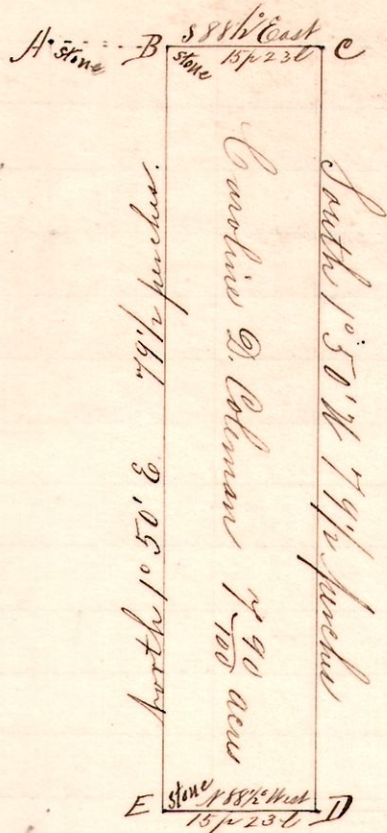 A stone B S 88½° East C
stone 15p 23l
South 1° 50' W 79½ perches
Caroline D. Coleman 7 90/100 acres
North 1° 50' E 79½ perches
E stone N 88½° West D
15p 23l